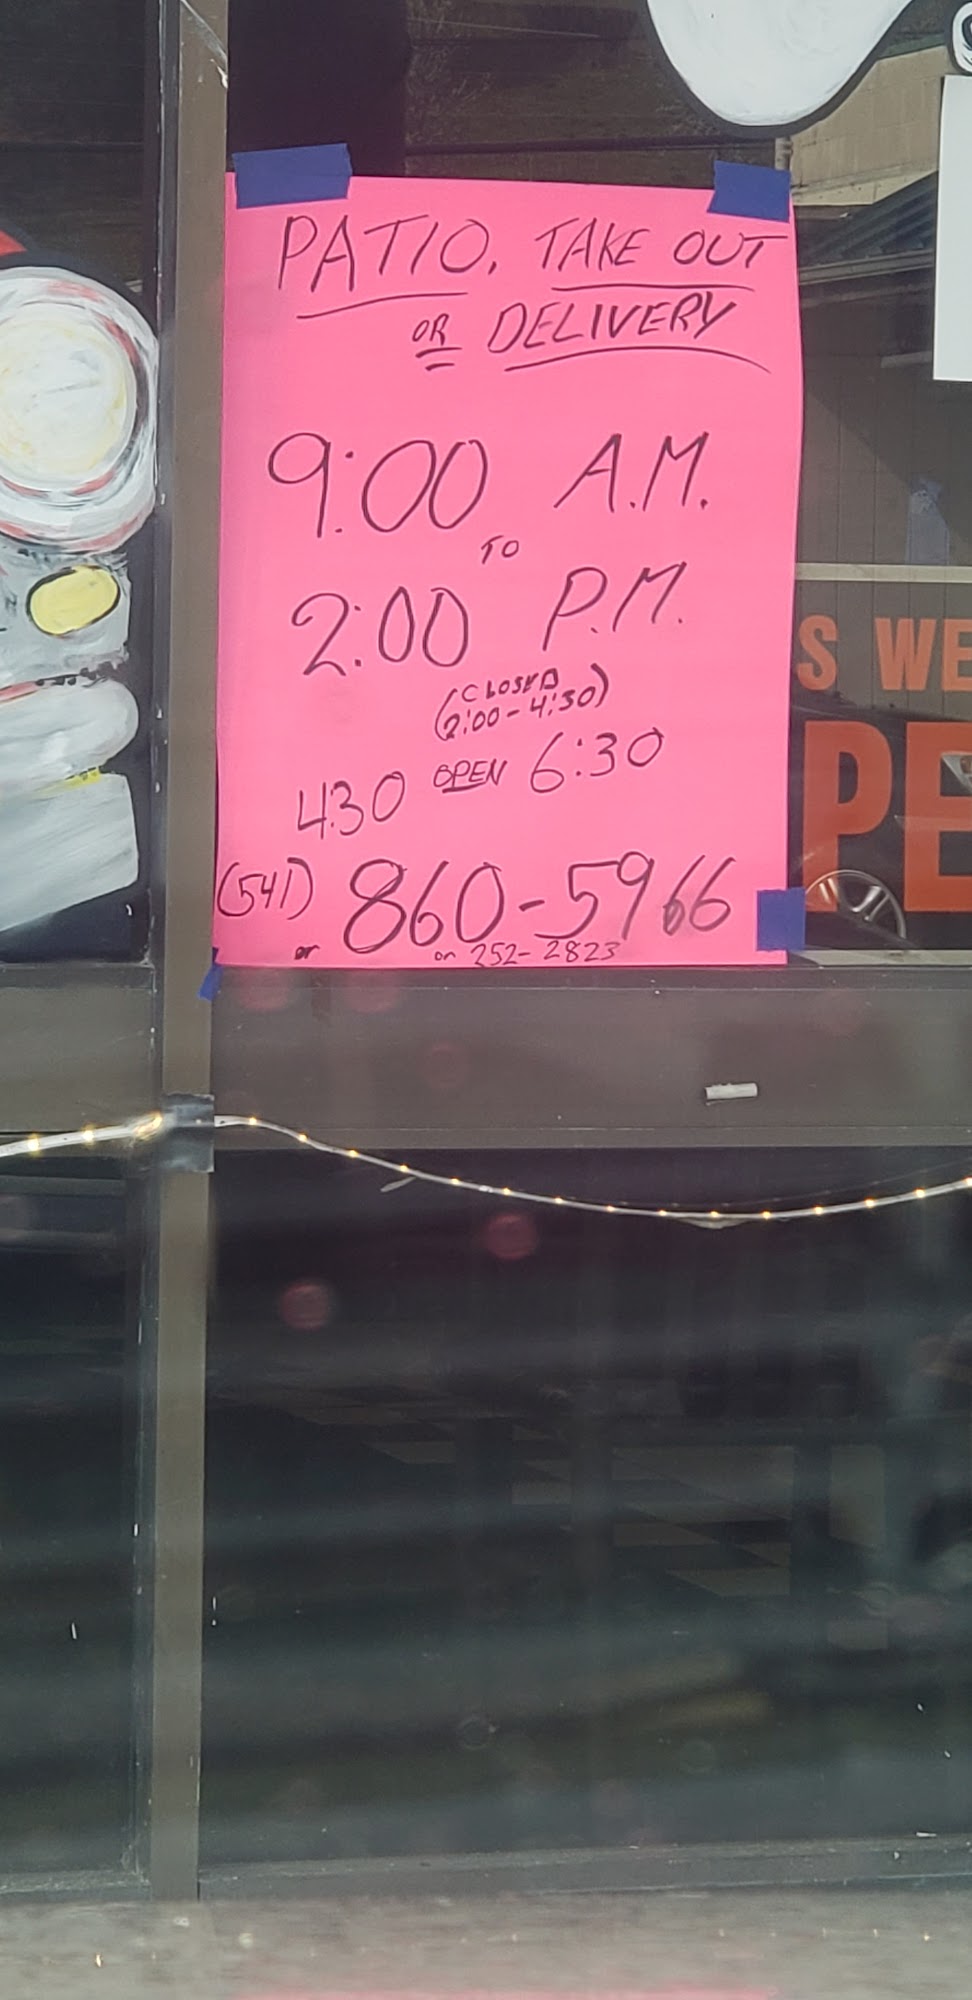 PATIO, TAKE OUT
OR DELIVERY
9:00 A.M.
TO
2:00 P.M.
(CLOSED
2:00-4:30)
4:30 OPEN 6:30
(541) 860-5966
or on 252-2823
S WE
PE